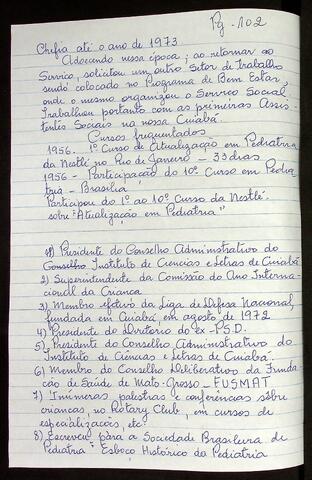 Pg. 102
Chefia até o ano de 1973
Adoecendo nessa época; ao retornar ao
Serviço, solicitou um outro Setor de Trabalho
sendo colocado no Programa de Bem Estar,
onde o mesmo organizou o Serviço Social.
Trabalhou portanto com as primeiras Assis-
tentes Sociais na nossa Cuiabá
Cursos frequentados
1956. 1º Curso de Atualização em Pediatria
da Nestlé no Rio de Janeiro - 33 dias
1956 - Participação do 10º Curso em Pedia
tria - Brasilia
Participou do 1º ao 10º Curso da Nestlé.
sobre "Atualização em Pediatria"
1) Presidente do Conselho Administrativo do
Conselho Instituto de Ciencias e Letras de Cuiabá
2) Superintendente da Comissão do Ano Interna-
cional da Criança
3) Membro efetivo da Liga de Defesa Nacional
fundada em Cuiabá em agosto de 1972
4) Presidente do Diretorio do ex-P.S.D.
5) Presidente do Conselho Administrativo do
Instituto de Ciências e Letras de Cuiabá.
6) Membro do Conselho Deliberativo da Funda
cão de Saúde de Mato-Grosso - FUSMAT
7) Inúmeras palestras e conferências sôbre
crianças, no Rotary Club, em cursos de
especializações, etc.
8) Escreveu para a Sociedade Brasileira de
Pediatria "Esboço Histórico da Pediatria